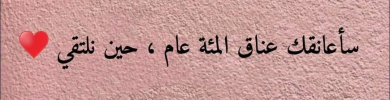 سأعانقك عناق المئة عام ، حين نلتقي ♥️